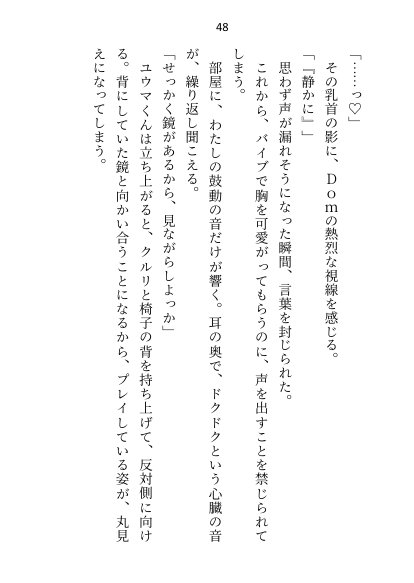 48
「……っ♡」
その乳首の影に、Ｄｏｍの熱烈な視線を感じる。
「『静かに』」
思わず声が漏れそうになった瞬間、言葉を封じられた。
これから、バイブで胸を可愛がってもらうのに、声を出すことを禁じられて
しまう。
部屋に、わたしの鼓動の音だけが響く。耳の奥で、ドクドクという心臓の音
が、繰り返し聞こえる。
「せっかく鏡があるから、見ながらしよっか」
ユウマくんは立ち上がると、クルリと椅子の背を持ち上げて、反対側に向け
る。背にしていた鏡と向かい合うことになるから、プレイしている姿が、丸見
えになってしまう。